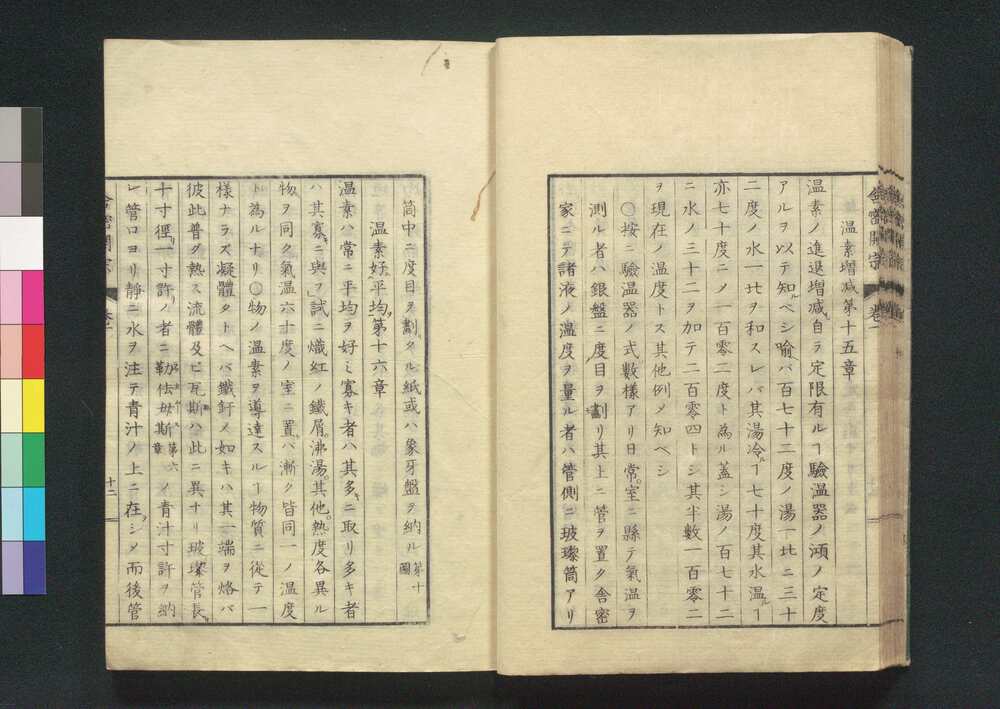 温素増減第十五章
温素ノ進退増減自ラ定限有ルヿ驗温器ノ澒ノ定度
アルヲ以テ知ルベシ喻バ百七十二度ノ湯一比ニ三十
二度ノ水一比ヲ和スレバ其湯冷ルヿ七十度其水温ルヿ
亦七十度ニノ一百零二度ト為ル蓋シ湯ノ百七十二
ニ水ノ三十二ヲ加テ二百零四トシ其半數一百零二
ヲ現在ノ温度トス其他例メ知ベシ
○按ニ驗温器ノ式數樣アリ日常室ニ縣テ氣温ヲ
測ル者ハ銀盤ニ度目ヲ劃リ其上ニ管ヲ置ク舎密
家ニテ諸液ノ温度ヲ量ル者ハ管側ニ玻瓈筒アリ
筒中ニ度目ヲ劃タル紙或ハ象牙盤ヲ納ル第十圖
温素好平均第十六章
温素ハ常ニ平均ヲ好ミ寡キ者ハ其多キニ取リ多キ者
ハ其寡キニ與フ試ニ熾紅ノ鐵屑沸湯其他熱度各異ル
物ヲ同ク氣温六十度ノ室ニ置バ漸ク皆同一ノ温度
ト為ルナリ○物ノ温素ヲ導達スルヿ物質ニ從テ一
樣ナラズ凝體タトヘバ鐵釬ノ如キハ其一端ヲ烙バ
彼此普ク熱ス流體及ビ瓦斯ハ此ニ異ナリ玻瓈管長サ
十寸徑リ一寸許リノ者ニ勒佉母斯第六章ノ青汁寸許ヲ納
レ管口ヨリ靜ニ水ヲ注テ青汁ノ上ニ在シメ而後管
舎密開宗
十二